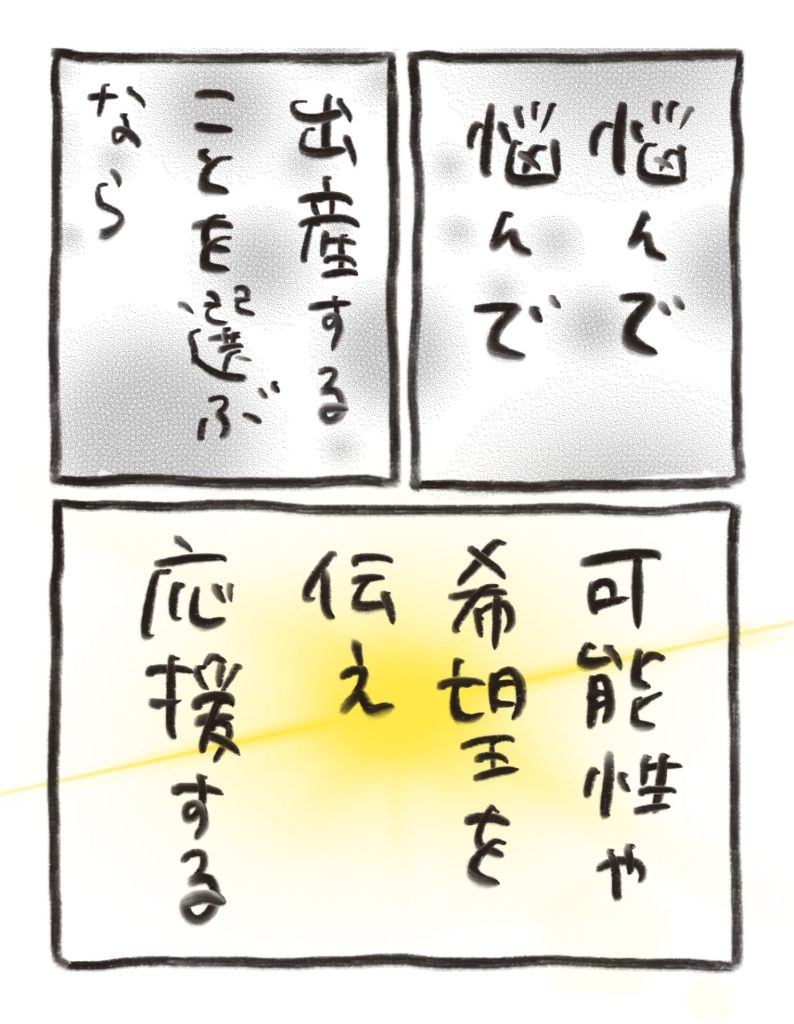 悩んで
悩んで
出産する
ことを選ぶ
なら
可能性や
希望を
伝え
応援する